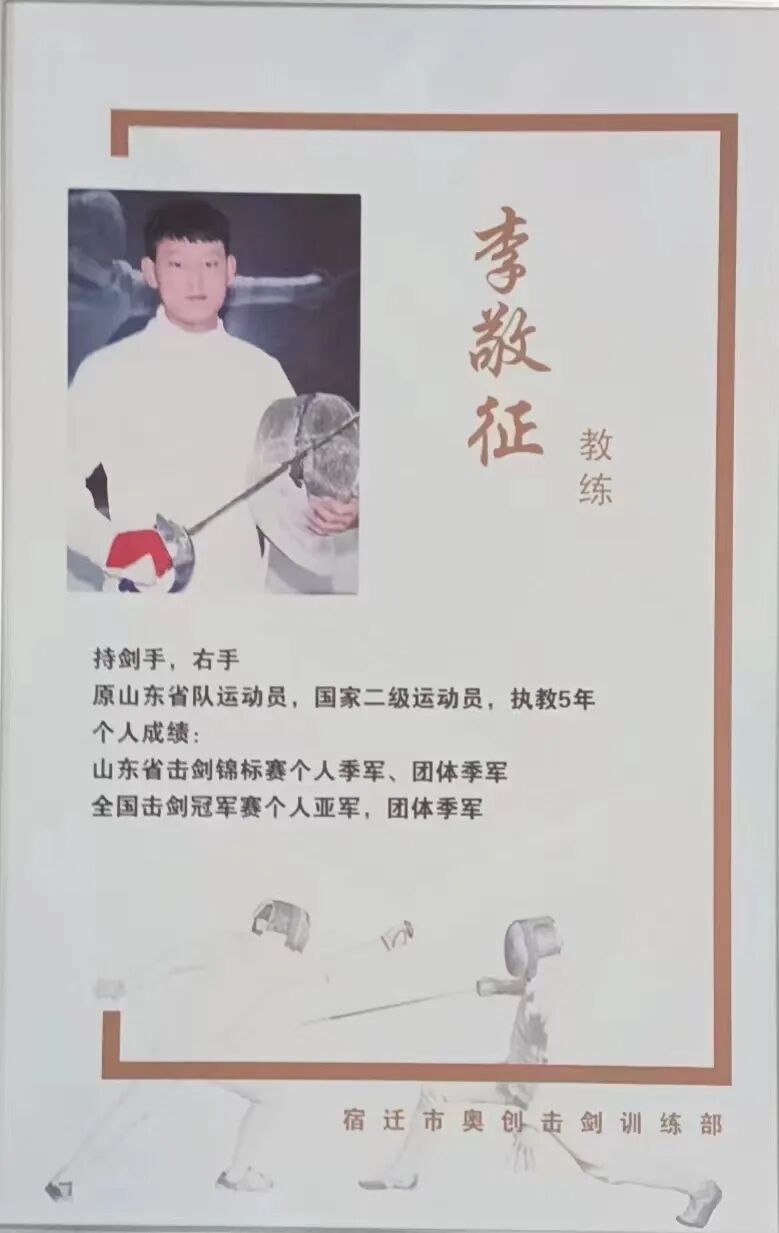 李敬征
教练
持剑手，右手
原山东省队运动员，国家二级运动员，执教5年
个人成绩：
山东省击剑锦标赛个人季军、团体季军
全国击剑冠军赛个人亚军，团体季军
宿迁市奥创击剑训练部